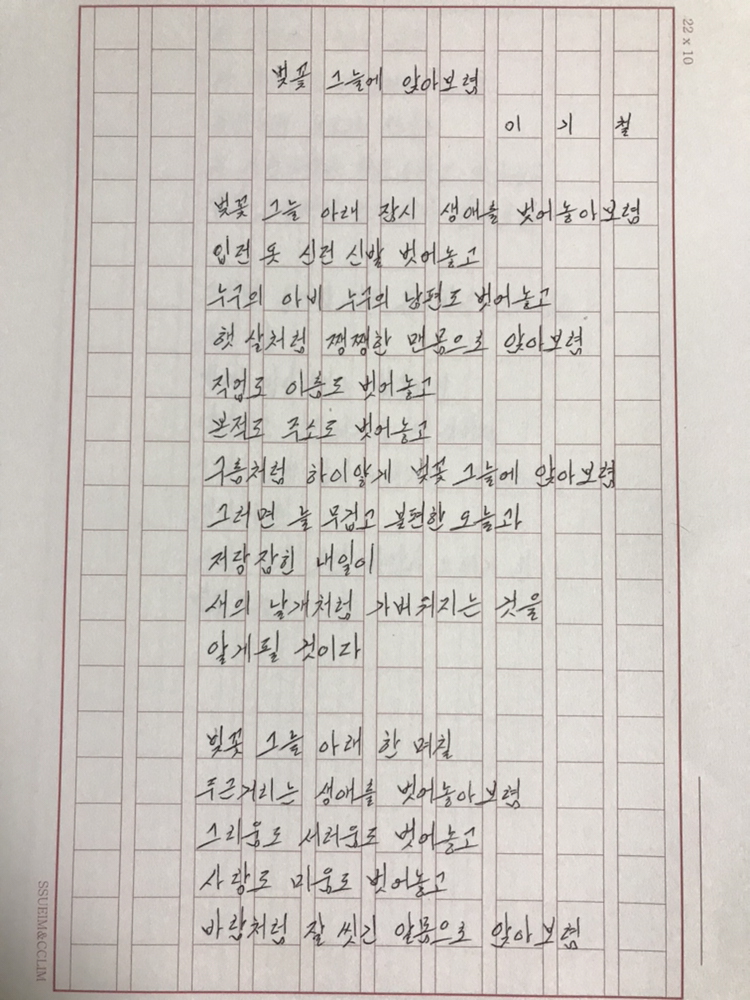 22 x 10
벚꽃 그늘에 앉아보렴
이 기 철
벚꽃 그늘 아래 잠시 생애를 벗어놓아보렴
입던 옷 신던 신발 벗어놓고
누구의 아비 누구의 남편도 벗어놓고
햇살처럼 쨍쨍한 맨몸으로 앉아보렴
직업도 이름도 벗어놓고
본적도 주소도 벗어놓고
구름처럼 하이얗게 벚꽃 그늘에 앉아보렴
그러면 늘 무겁고 불편한 오늘과
저당 잡힌 내일이
새의 날개처럼 가벼워지는 것을
알게 될 것이다
벚꽃 그늘 아래 한 며칠
두근거리는 생애를 벗어놓아보렴
그리움도 서러움도 벗어놓고
사랑도 미움도 벗어놓고
바람처럼 잘 씻긴 알몸으로 앉아보렴
SSUEIM&CCLIM